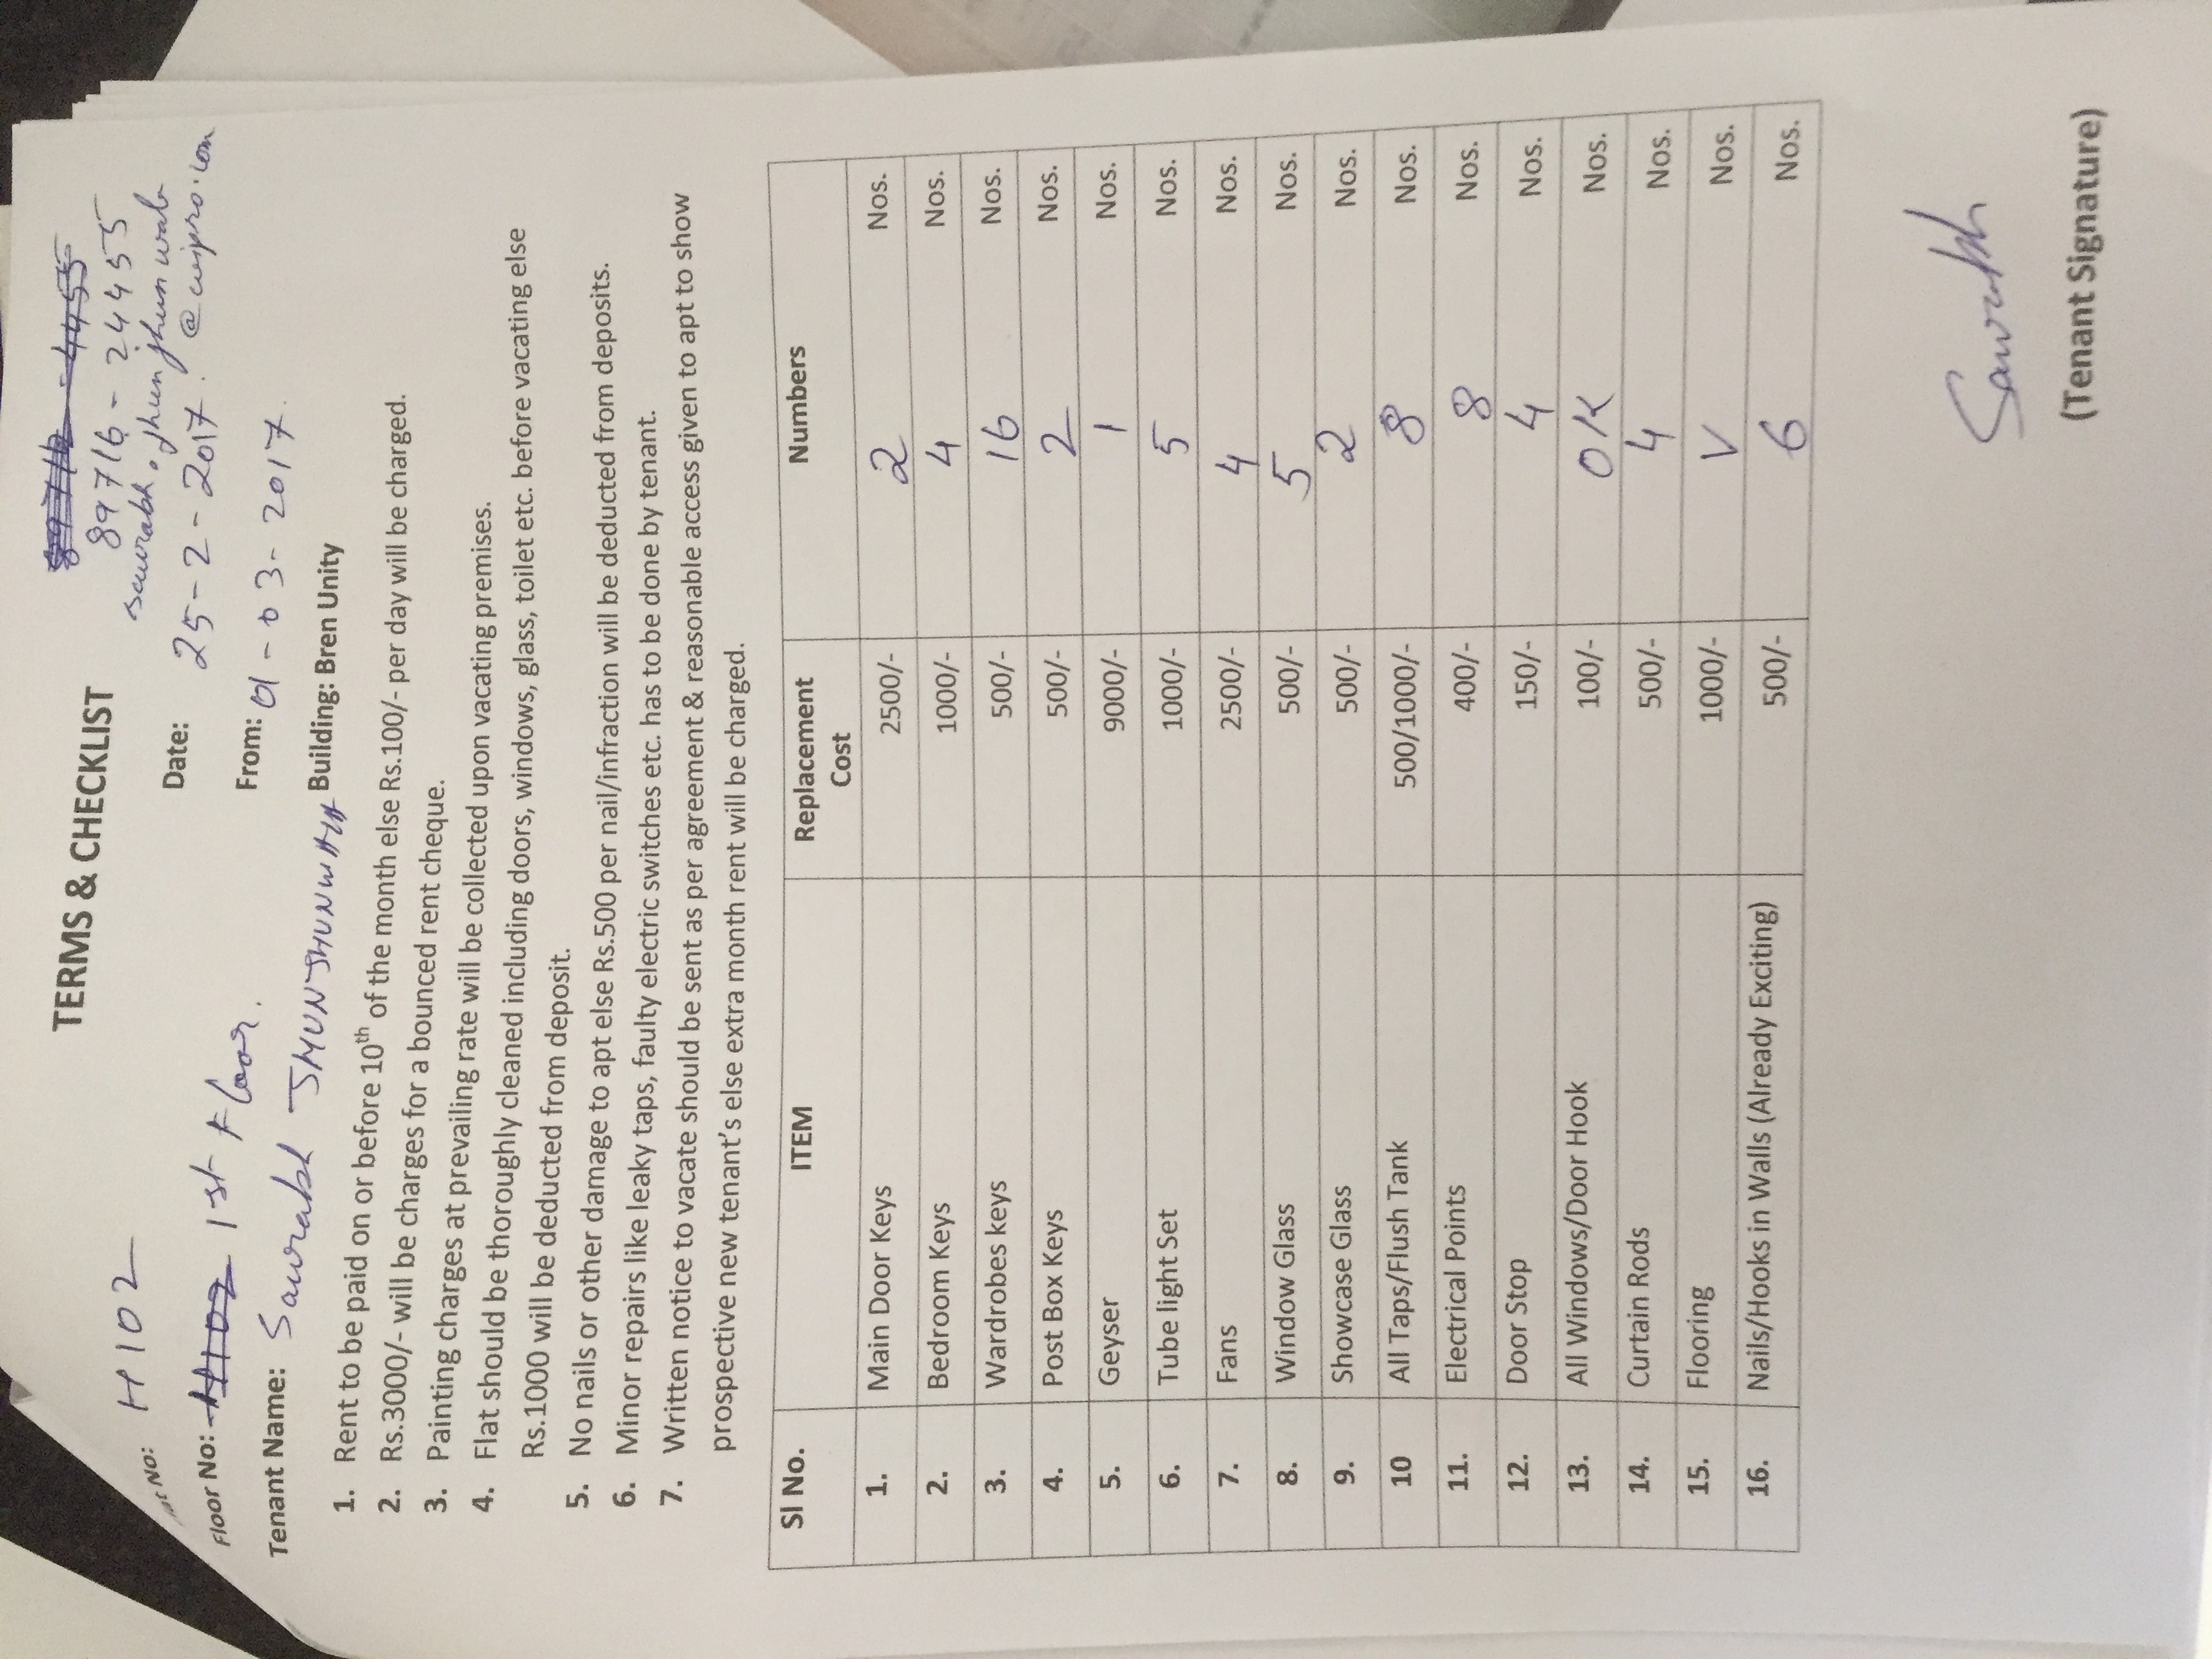 TERMS & CHECKLIST
89716 - 4455
89716 - 24455
saurabh.jhunjhunwala
@wipro.com
at No: H102
Date: 25-2-2017.
Floor No: H102 1st Floor.
From: 01-03-2017.
Tenant Name: Saurabh JHUNJHUNWALA
Building: Bren Unity
1. Rent to be paid on or before 10th of the month else Rs.100/- per day will be charged.
2. Rs.3000/- will be charges for a bounced rent cheque.
3. Painting charges at prevailing rate will be collected upon vacating premises.
4. Flat should be thoroughly cleaned including doors, windows, glass, toilet etc. before vacating else
Rs.1000 will be deducted from deposit.
5. No nails or other damage to apt else Rs.500 per nail/infraction will be deducted from deposits.
6. Minor repairs like leaky taps, faulty electric switches etc. has to be done by tenant.
7. Written notice to vacate should be sent as per agreement & reasonable access given to apt to show
prospective new tenant's else extra month rent will be charged.
Sl No. ITEM Replacement Cost Numbers
1. Main Door Keys 2500/- 2 Nos.
2. Bedroom Keys 1000/- 4 Nos.
3. Wardrobes keys 500/- 16 Nos.
4. Post Box Keys 500/- 2 Nos.
5. Geyser 9000/- 1 Nos.
6. Tube light Set 1000/- 5 Nos.
7. Fans 2500/- 4 Nos.
8. Window Glass 500/- 5 Nos.
9. Showcase Glass 500/- 2 Nos.
10 All Taps/Flush Tank 500/1000/- 8 Nos.
11. Electrical Points 400/- 8 Nos.
12. Door Stop 150/- 4 Nos.
13. All Windows/Door Hook 100/- OK Nos.
14. Curtain Rods 500/- 4 Nos.
15. Flooring 1000/- V Nos.
16. Nails/Hooks in Walls (Already Exciting) 500/- 6 Nos.
Saurabh
(Tenant Signature)